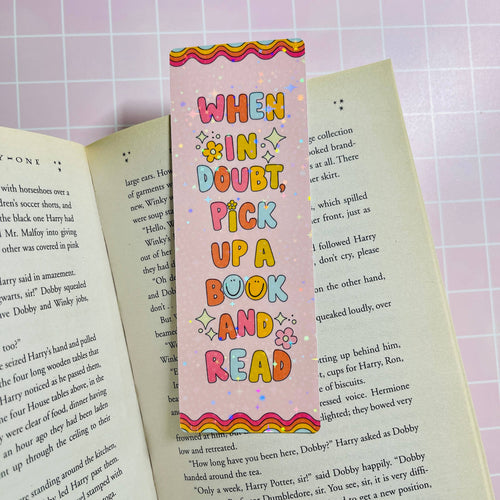 WHEN
IN
DOUBT,
PICK
UP A
BOOK
AND
READ
Y-ONE
with horseshoes over a
dren's soccer shorts, and
the black one Harry had
Mr. Malfoy into giving
other was covered in pink
Harry said in amazement.
warts, sir!" Dobby squealed
Dobby and Winky jobs,
too?"
seized Harry's hand and pulled
the four long wooden tables that
Harry noticed as he passed them,
the four House tables above, in the
were clear of food, dinner having
an hour ago they had been
up through the ceiling to their
were standing around the kitchen,
led Harry past them.
large ears. How
of garments w
new, Winky
were soup sta
"Hello, W
Winky's
out of her
they had d
"Oh de
and
"
"
"
"
of
frowned at him, but
low and respectfully.
"How long have you been here, Dobby?" Harry asked as Dobby
handed around the tea.
"Only a week, Harry Potter, sir!" said Dobby happily. "Dobby
Dumbledore, sir. You see, sir, it is very diffi-
to get a new position,
range collection
looked brand-
at all. There
her skirt.
which spilled
front, just as
followed Harry
don't cry, please
on the other hand,
squeaked loudly, over
itting up behind him,
cups for Harry, Ron,
of biscuits.
excited voice. Hermione
delighted; they bowed very